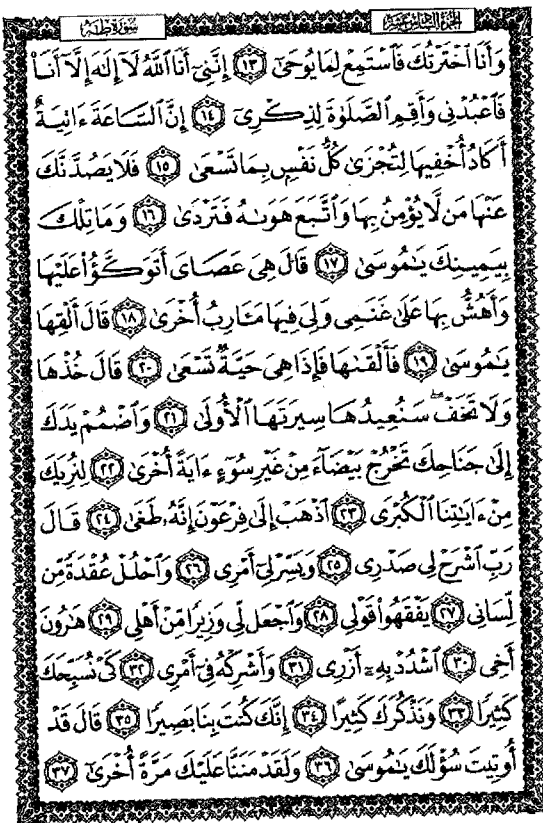 الجزء السادس عشر
سورة طه
وَأَنَا ٱخْتَرْتُكَ فَٱسْتَمِعْ لِمَا يُوحَىٰٓ ۝١٣ إِنَّنِىٓ أَنَا ٱللَّهُ لَآ إِلَٰهَ إِلَّآ أَنَا۠
فَٱعْبُدْنِى وَأَقِمِ ٱلصَّلَوٰةَ لِذِكْرِىٓ ۝١٤ إِنَّ ٱلسَّاعَةَ ءَاتِيَةٌ
أَكَادُ أُخْفِيهَا لِتُجْزَىٰ كُلُّ نَفْسٍۭ بِمَا تَسْعَىٰ ۝١٥ فَلَا يَصُدَّنَّكَ
عَنْهَا مَن لَّا يُؤْمِنُ بِهَا وَٱتَّبَعَ هَوَىٰهُ فَتَرْدَىٰ ۝١٦ وَمَا تِلْكَ
بِيَمِينِكَ يَٰمُوسَىٰ ۝١٧ قَالَ هِىَ عَصَاىَ أَتَوَكَّؤُا۟ عَلَيْهَا
وَأَهُشُّ بِهَا عَلَىٰ غَنَمِى وَلِىَ فِيهَا مَـَٔارِبُ أُخْرَىٰ ۝١٨ قَالَ أَلْقِهَا
يَٰمُوسَىٰ ۝١٩ فَأَلْقَىٰهَا فَإِذَا هِىَ حَيَّةٌ تَسْعَىٰ ۝٢٠ قَالَ خُذْهَا
وَلَا تَخَفْ ۖ سَنُعِيدُهَا سِيرَتَهَا ٱلْأُولَىٰ ۝٢١ وَٱضْمُمْ يَدَكَ
إِلَىٰ جَنَاحِكَ تَخْرُجْ بَيْضَآءَ مِنْ غَيْرِ سُوٓءٍ ءَايَةً أُخْرَىٰ ۝٢٢ لِنُرِيَكَ
مِنْ ءَايَٰتِنَا ٱلْكُبْرَى ۝٢٣ ٱذْهَبْ إِلَىٰ فِرْعَوْنَ إِنَّهُۥ طَغَىٰ ۝٢٤ قَالَ
رَبِّ ٱشْرَحْ لِى صَدْرِى ۝٢٥ وَيَسِّرْ لِىٓ أَمْرِى ۝٢٦ وَٱحْلُلْ عُقْدَةً مِّن
لِّسَانِى ۝٢٧ يَفْقَهُوا۟ قَوْلِى ۝٢٨ وَٱجْعَل لِّى وَزِيرًا مِّنْ أَهْلِى ۝٢٩ هَٰرُونَ
أَخِى ۝٣٠ ٱشْدُدْ بِهِۦٓ أَزْرِى ۝٣١ وَأَشْرِكْهُ فِىٓ أَمْرِى ۝٣٢ كَىْ نُسَبِّحَكَ
كَثِيرًا ۝٣٣ وَنَذْكُرَكَ كَثِيرًا ۝٣٤ إِنَّكَ كُنتَ بِنَا بَصِيرًا ۝٣٥ قَالَ قَدْ
أُوتِيتَ سُؤْلَكَ يَٰمُوسَىٰ ۝٣٦ وَلَقَدْ مَنَنَّا عَلَيْكَ مَرَّةً أُخْرَىٰٓ ۝٣٧